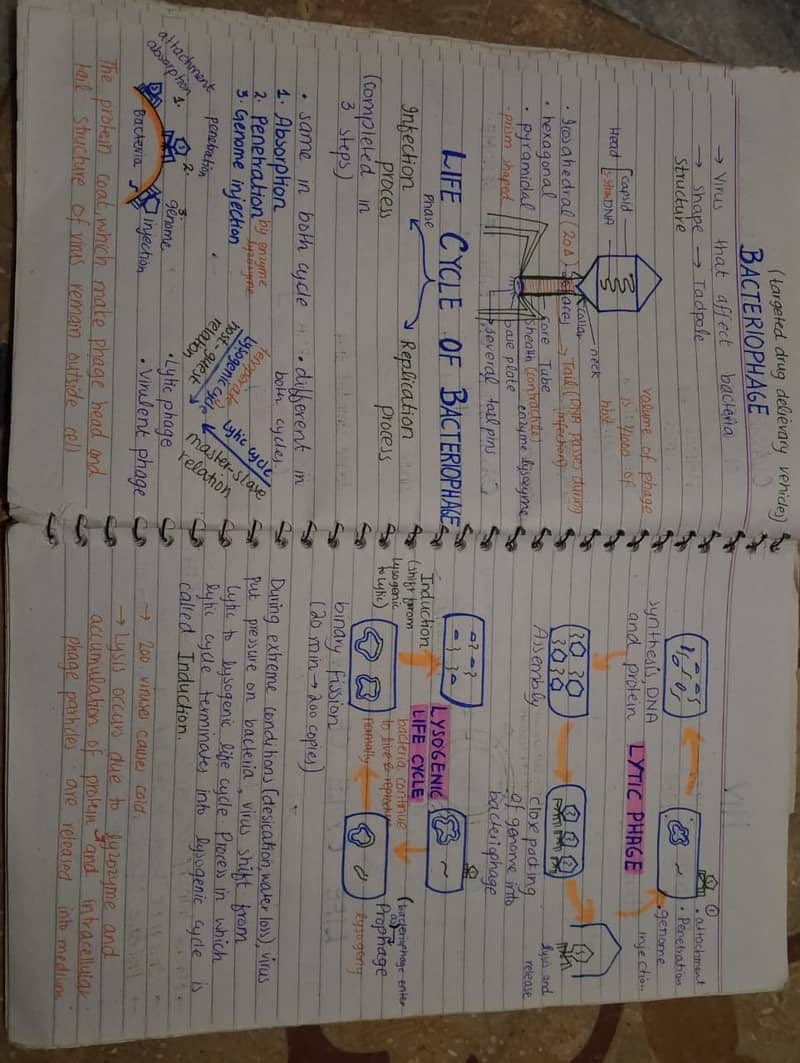 (targeted drug delievary vehicle)
BACTERIOPHAGE
→ Virus that affect bacteria
→ Shape → Tadpole
structure
volume of phage
is 1/1000 of
host.
Head
capsid
DNA
neck
collar
• Icosahedral (20Δ)
Tail (DNA passes during
infection)
• hexagonal
Core Tube
• pyramidal
sheath (contractile)
enzyme lysozyme
• prism shaped
base plate
several tail pins
LIFE CYCLE OF BACTERIOPHAGE
Phase
Infection
process
(completed in
3 steps)
Replication
Process
• same in both cycle
• different in
both cycles.
1. Absorption
2. Penetration by enzyme
lysozyme
3. Genome injection
lytic cycle
master-slave
relation
lysogenic cycle
host-guest
relation
• Lytic phage
• Virulent phage
attachment
absorption
1.
penetration
2.
3.
genome
injection
Bacteria
The protein coat, which make phage head and
tail structure of virus remain outside cell
①
• attachment
• Penetration
• genome
injection
LYTIC PHAGE
synthesis, DNA
and protein
Assembly
close packing
of genome into
bacteriophage
lysis and
release
LYSOGENIC
LIFE CYCLE
Induction
(shift from
lysogenic
to lytic)
bacteria continue
to live & reproduce
normally
(bacteriophage enter
as)
Prophage
lysogeny
binary fission
(20 min → 200 copies)
During extreme conditions (desication, water loss), virus
put pressure on bacteria, virus shift from
lytic to lysogenic life cycle. Process in which
lytic cycle terminates into lysogenic cycle is
called Induction.
→ 200 viruses cause cold.
→ Lysis occurs due to lyzozyme and
accumulation of protein and intracellular
phage particles are released into medium.